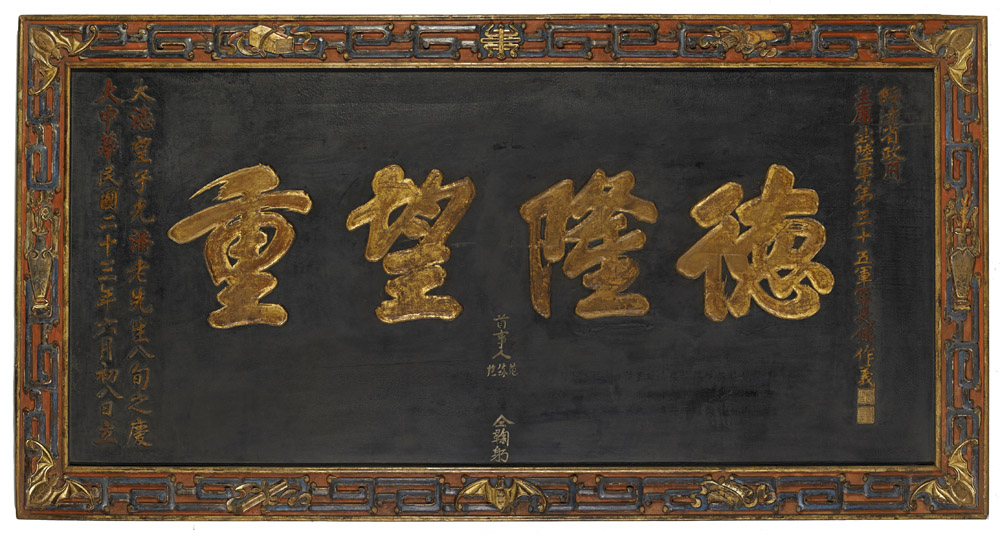 綏遠省政府
主席兼陸軍第三十五軍軍長傅作義
德隆望重
首事人
仝鞠躬
大德望子九老先生八旬之慶
大中華民國二十三年六月初八日立